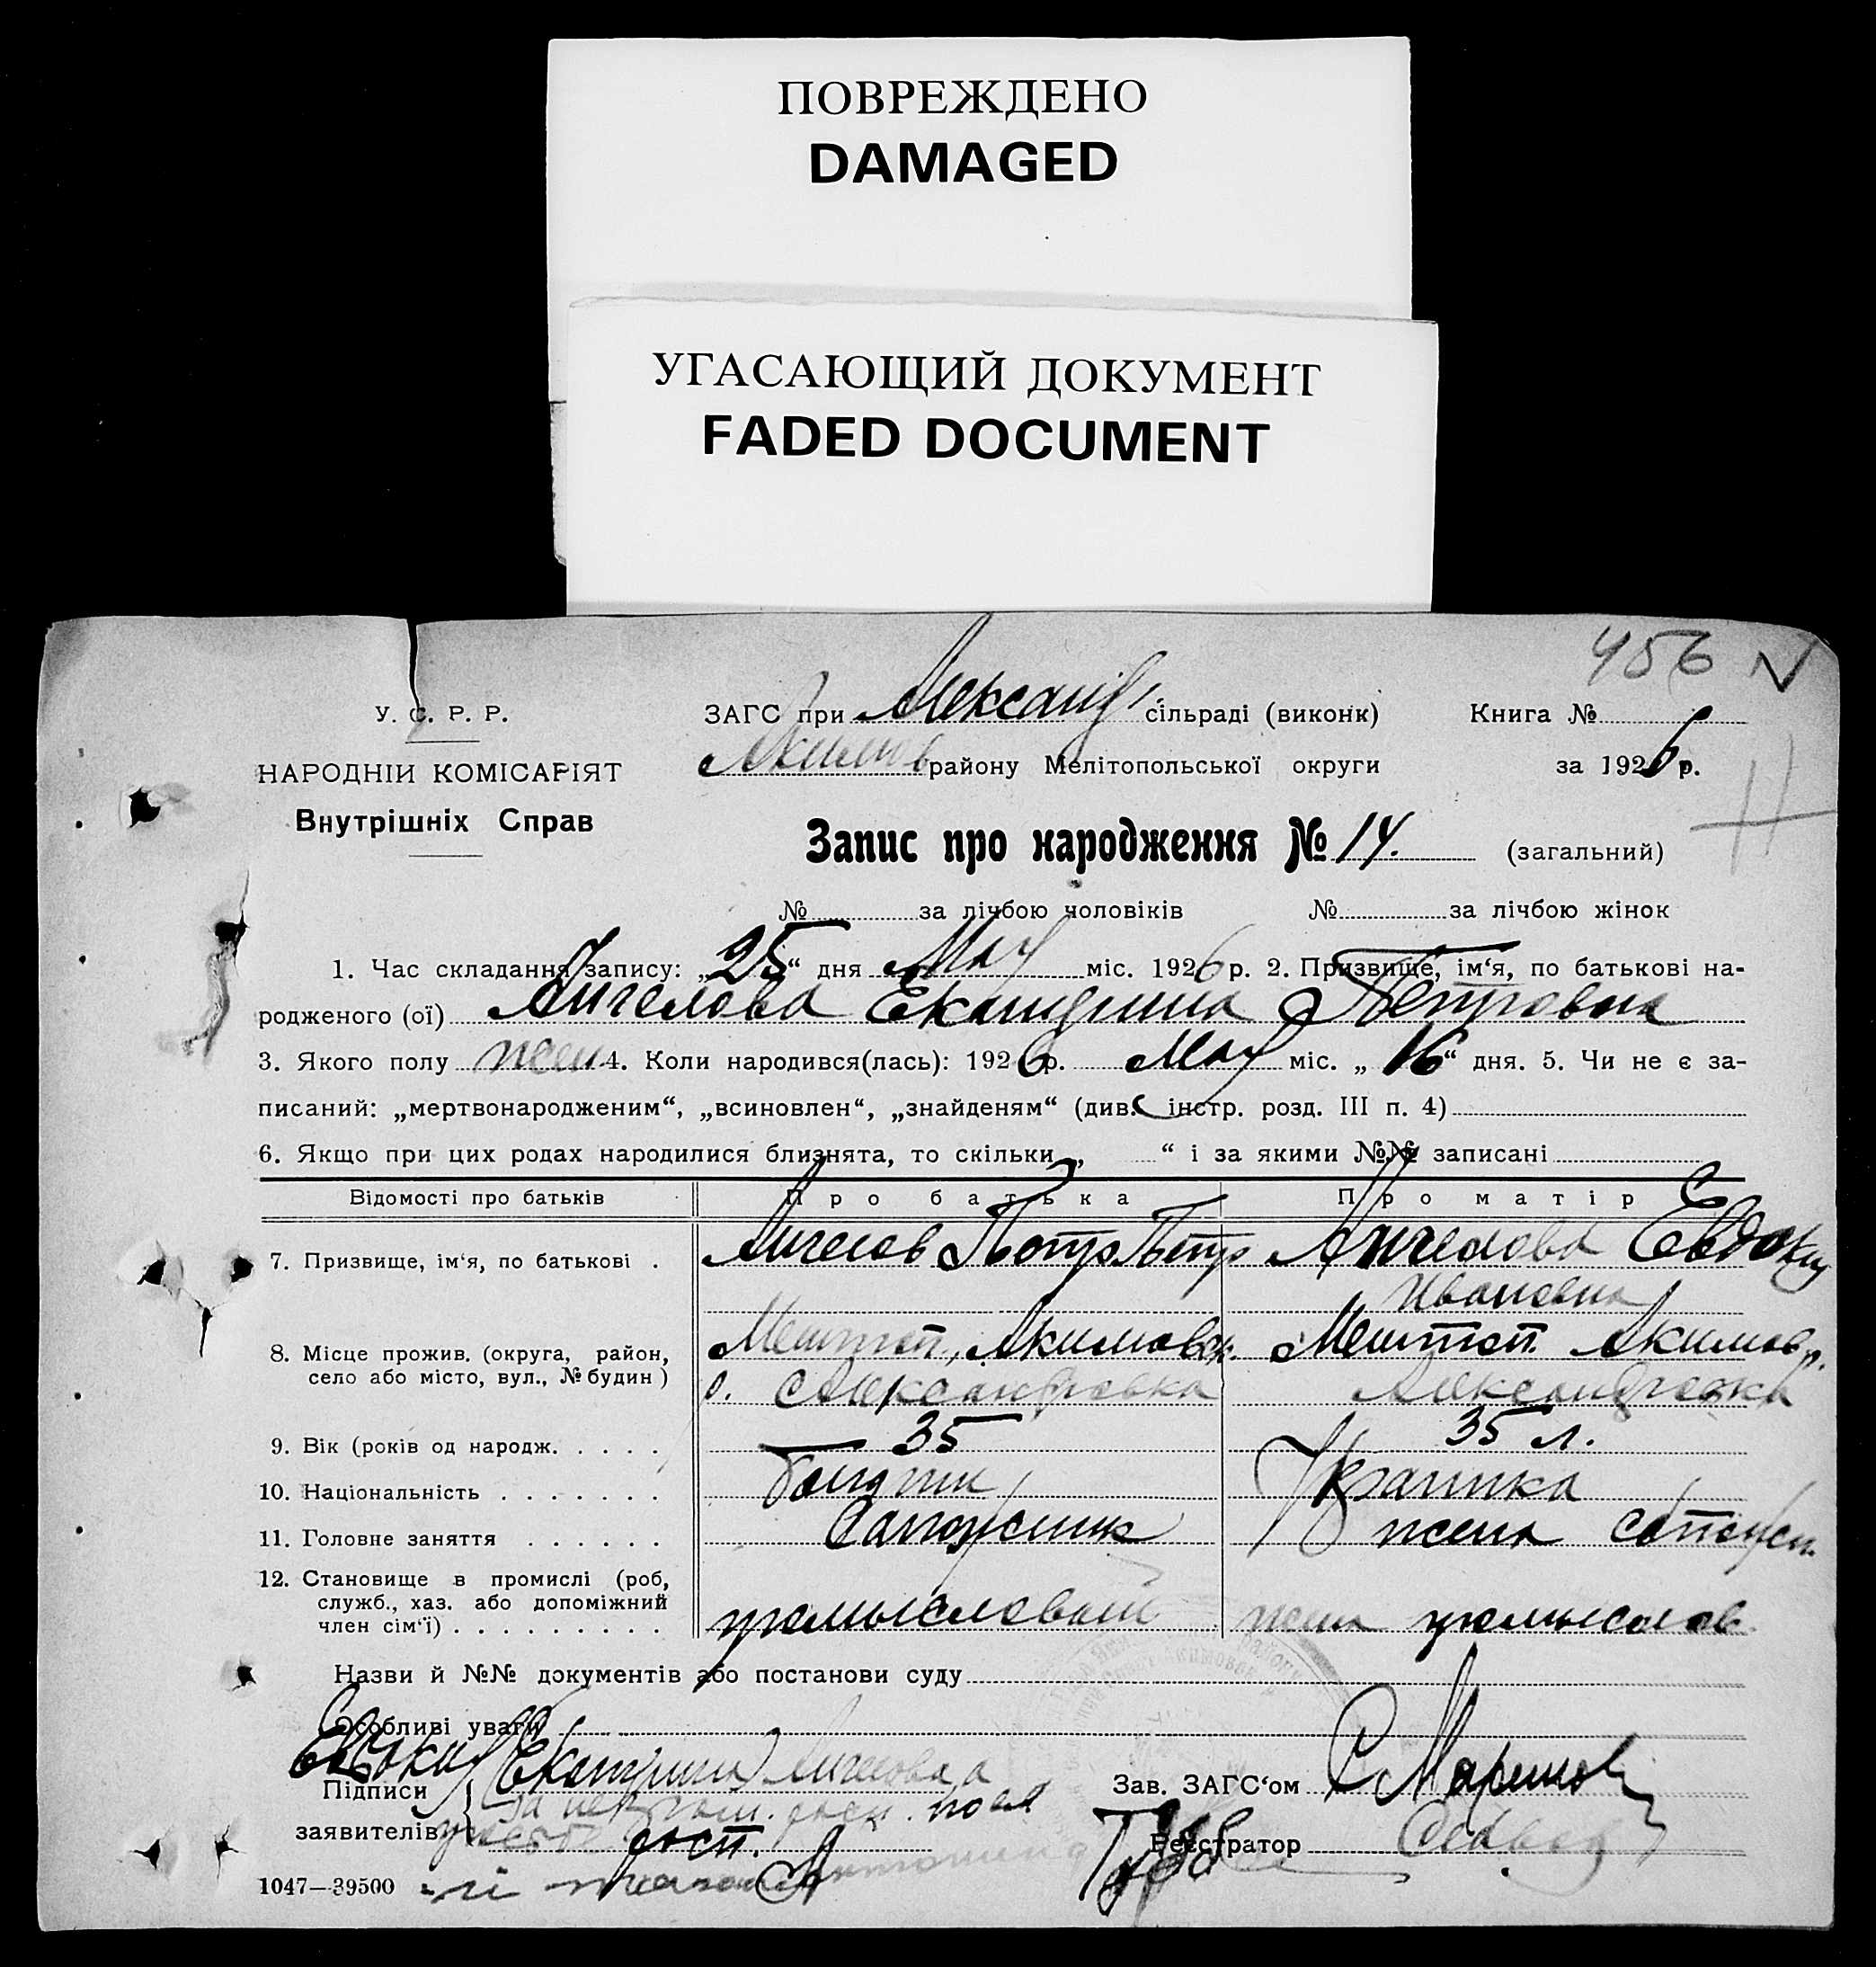 ПОВРЕЖДЕНО
DAMAGED
УГАСАЮЩИЙ ДОКУМЕНТ
FADED DOCUMENT
456
У. С. Р. Р.
НАРОДНІЙ КОМІСАРІЯТ
Внутрішніх Справ
ЗАГС при Александ. сільраді (виконк) Книга №
Акимов району Мелітопольської округи за 1926 р.
Запис про народження № 14. (загальний)
№ за лічбою чоловіків № за лічбою жінок
1. Час складання запису: „25“ дня Мая міс. 1926 р. 2. Призвище, ім‘я, по батькові на-
родженого (ої) Ангелова Екатерина Петровна
3. Якого полу жен 4. Коли народився(лась): 1926 р. Мая міс. „16“ дня. 5. Чи не є за-
писаний: „мертвонародженим“, „всиновлен“, „знайденям“ (див. інстр. розд. III п. 4)
6. Якщо при цих родах народилися близнята, то скільки „ “ і за якими №№ записані
Відомості про батьків Про батька Про матір
7. Призвище, ім‘я, по батькові . Ангелов Петр Петр Ангелова Евдокия
Ивановна
8. Місце прожив. (округа, район, село або місто, вул., № будин) Мелитоп., Акимовск. Мелитоп. Акимов р.
р. с Александровка Александровка
9. Вік (років од народж. . . . . 35 35 л.
10. Національність . . . . . . . Украинка
11. Головне заняття . . . . . . Сапожник жена сапожн.
12. Становище в промислі (роб,
служб., хаз. або допоміжний
член сім‘ї) . . . . . . . . . промысловый жена промыслов
Назви й №№ документів або постанови суду
Особливі уваги
Евдокия Екатерина Ангелова
Підписи
заявителів
Зав. ЗАГС‘ом
Реєстратор
1047—39500